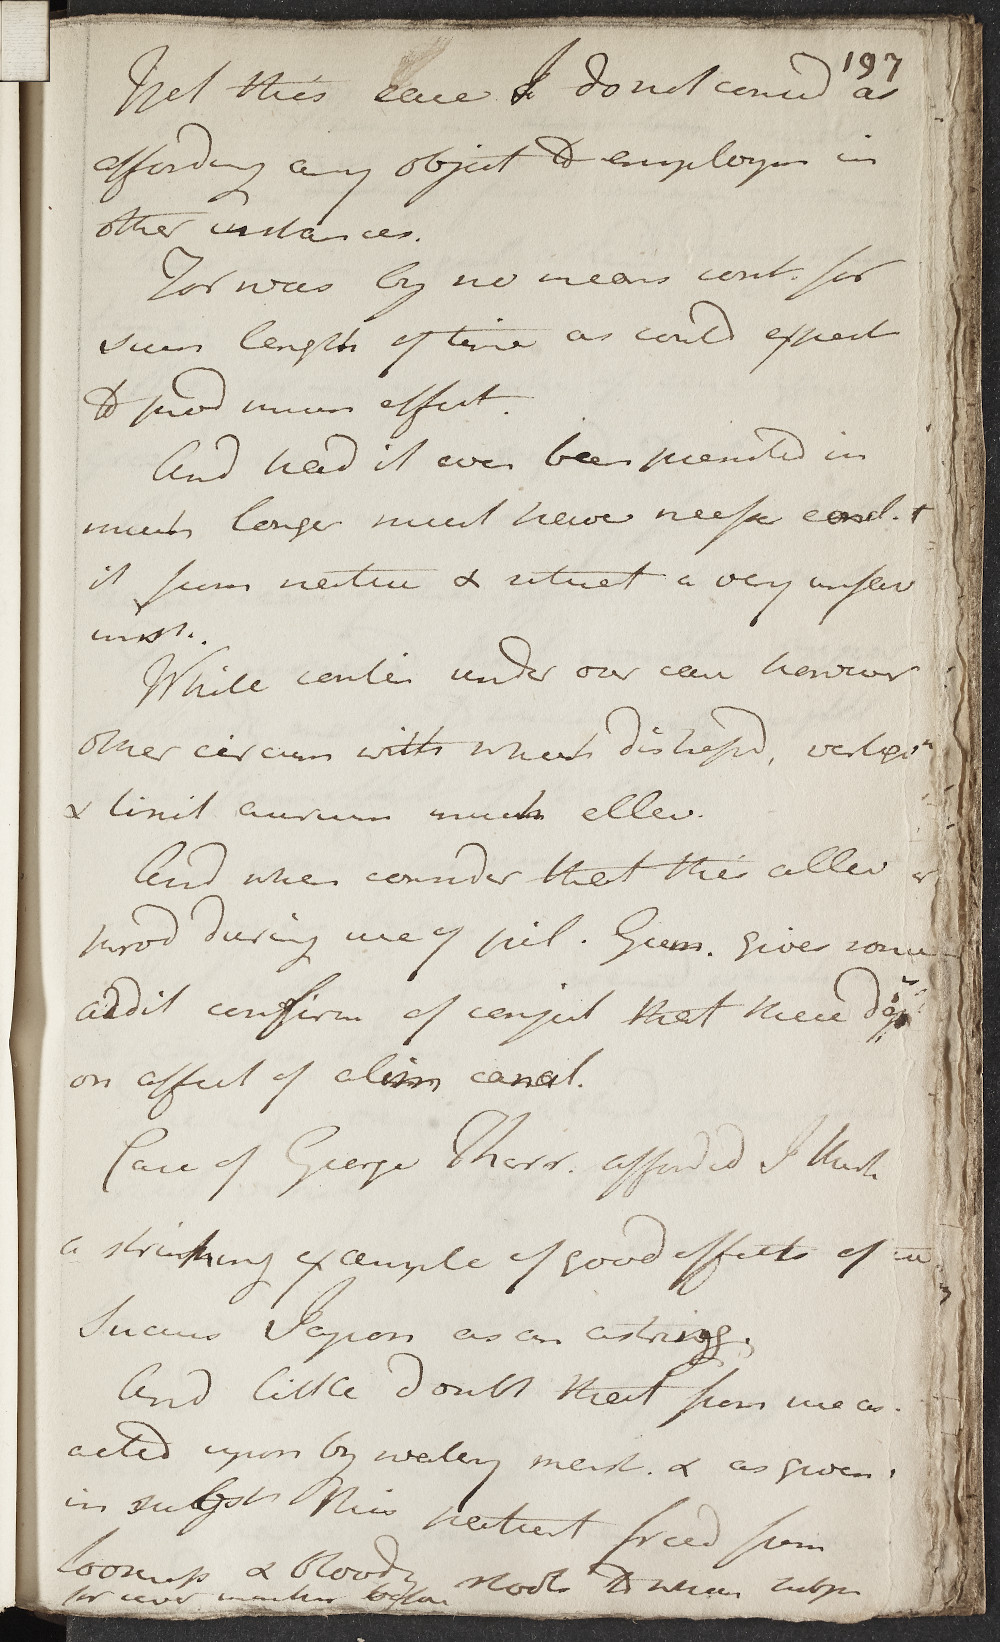 197
Yet this case I do not consid as
affording any object to employm in
other instances.
For was by no means cont. for
such length of time as could expect
to prod much effect.
And had it even been persisted in
much longer must have necess cond.
it from nature & situat a very unfav
inst.
While contin under our care however
other circum with which distressd, vertigo
& tinit aurium much allev.
And when consider that this allev
prod during use of pil. Gum. gives some
addit confirm of conject that these dep
on affect of alim canal.
Case of George Tharr. afforded I think
a striking example of good effects of
Succus Japon as an astring.
And little doubt that from use as
acted upon by watery menst. & as given
in subst this patient freed from
looseness & bloody stools to which subject
for seven months before